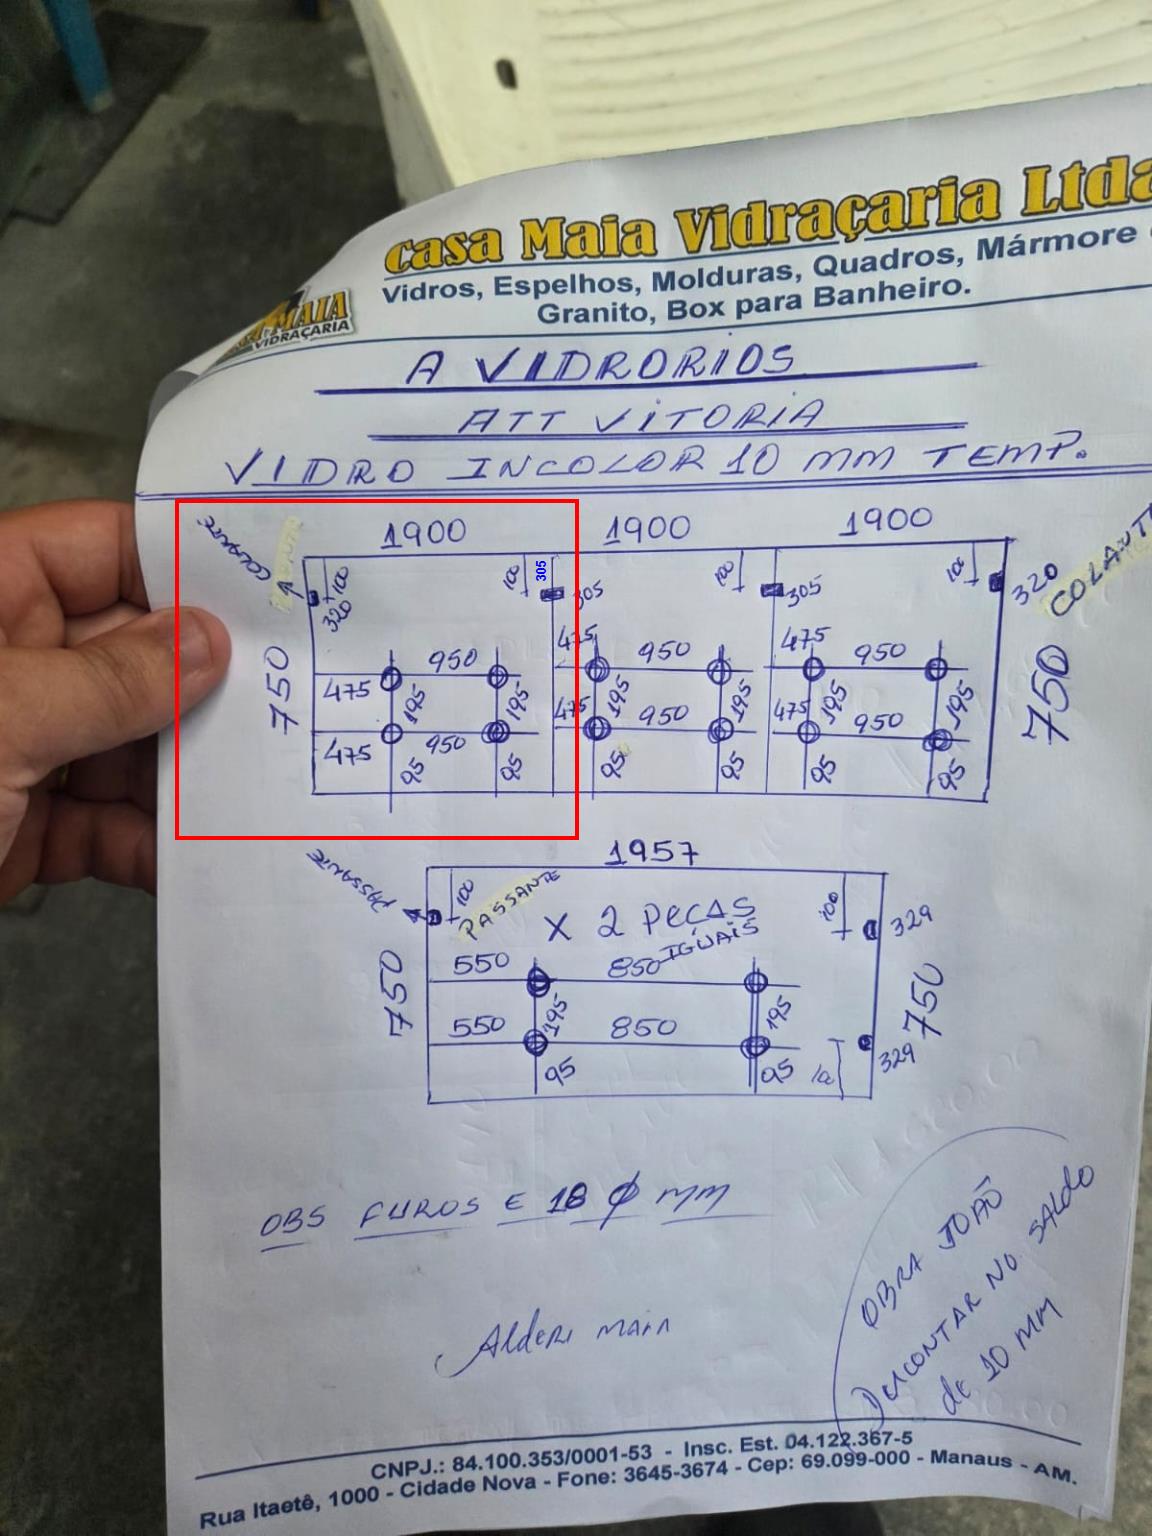 Casa Maia Vidraçaria Ltda
Vidros, Espelhos, Molduras, Quadros, Mármore
Granito, Box para Banheiro.
MAIA
VIDRAÇARIA
A VIDRORIOS
ATT VITORIA
VIDRO INCOLOR 10 MM TEMP.
1900 1900 1900
COLANTE
100 320 100 305 305 100 305 100 320 COLANTE
750 750
950 475 950 475 950
475 195 195 195 195 195 195
475 950 475 950 475 950
95 95 95 95 95 95
1957
PASSANTE
100 PASSANTE 100 329
X 2 PEÇAS
IGUAIS
750 750
550 850
195 195
550 850 329
95 95
OBS FUROS E 18 Ø MM
OBRA JOÃO
DESCONTAR NO SALDO
de 10 MM
Alderi Maia
CNPJ.: 84.100.353/0001-53 - Insc. Est. 04.122.367-5
Rua Itaetê, 1000 - Cidade Nova - Fone: 3645-3674 - Cep: 69.099-000 - Manaus - AM.